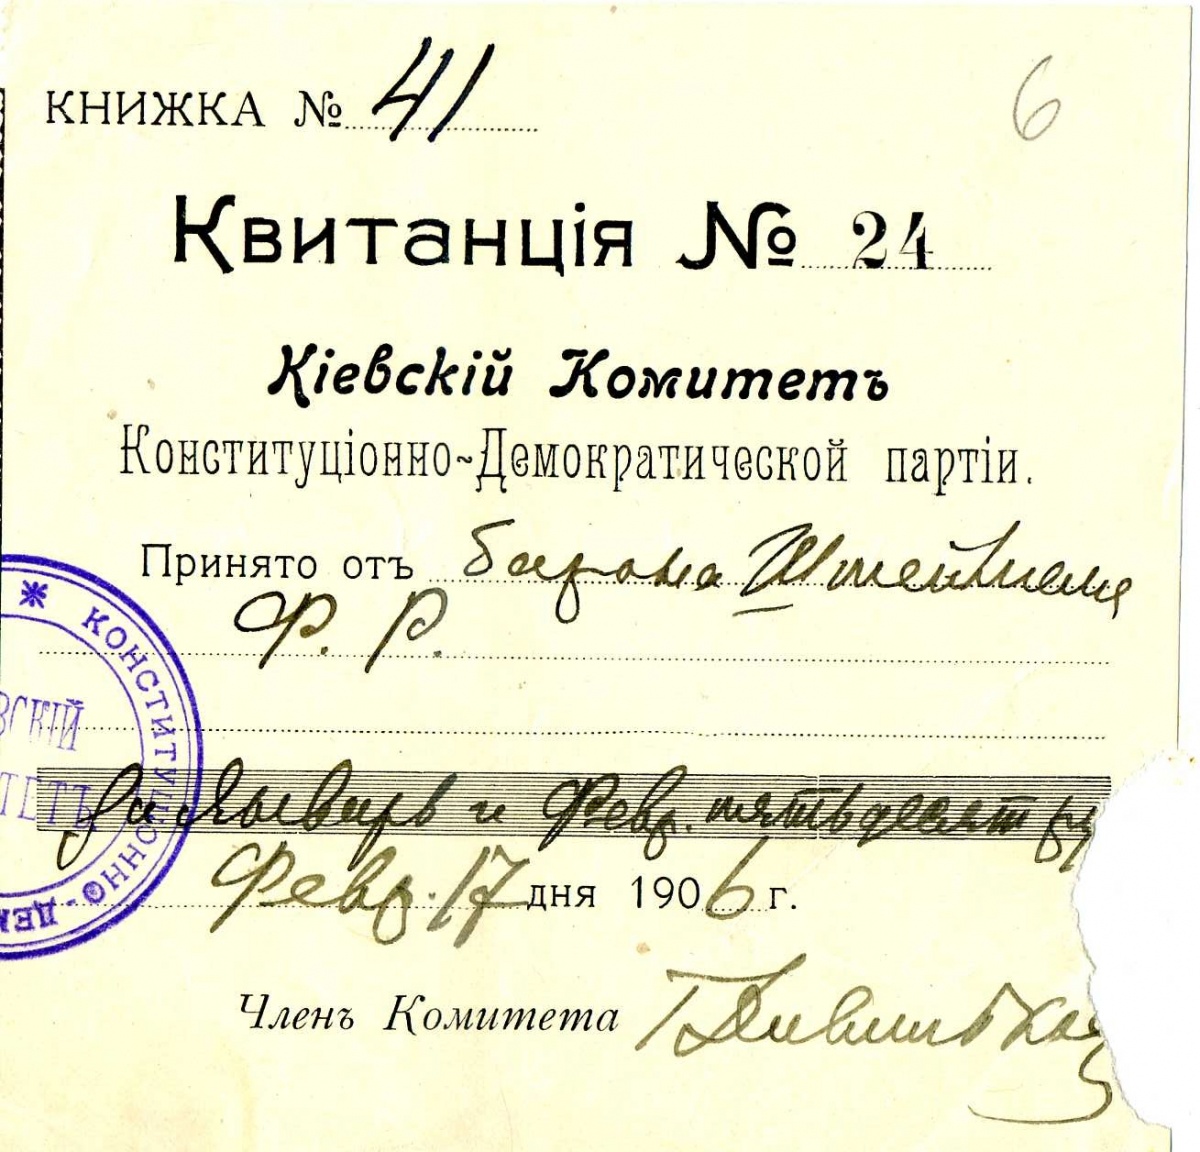 КНИЖКА № 41
6
Квитанція № 24
Кіевскій Комитетъ
Конституціонно-Демократической партіи.
Принято отъ барона Штейнгеля
Ф. Р.
КОНСТИТУЦІОННО-ДЕМ
ВСКІЙ
ТЕТЪ
За Январь и Февр. пятьдесят ру
Февр. 17 дня 1906 г.
Членъ Комитета